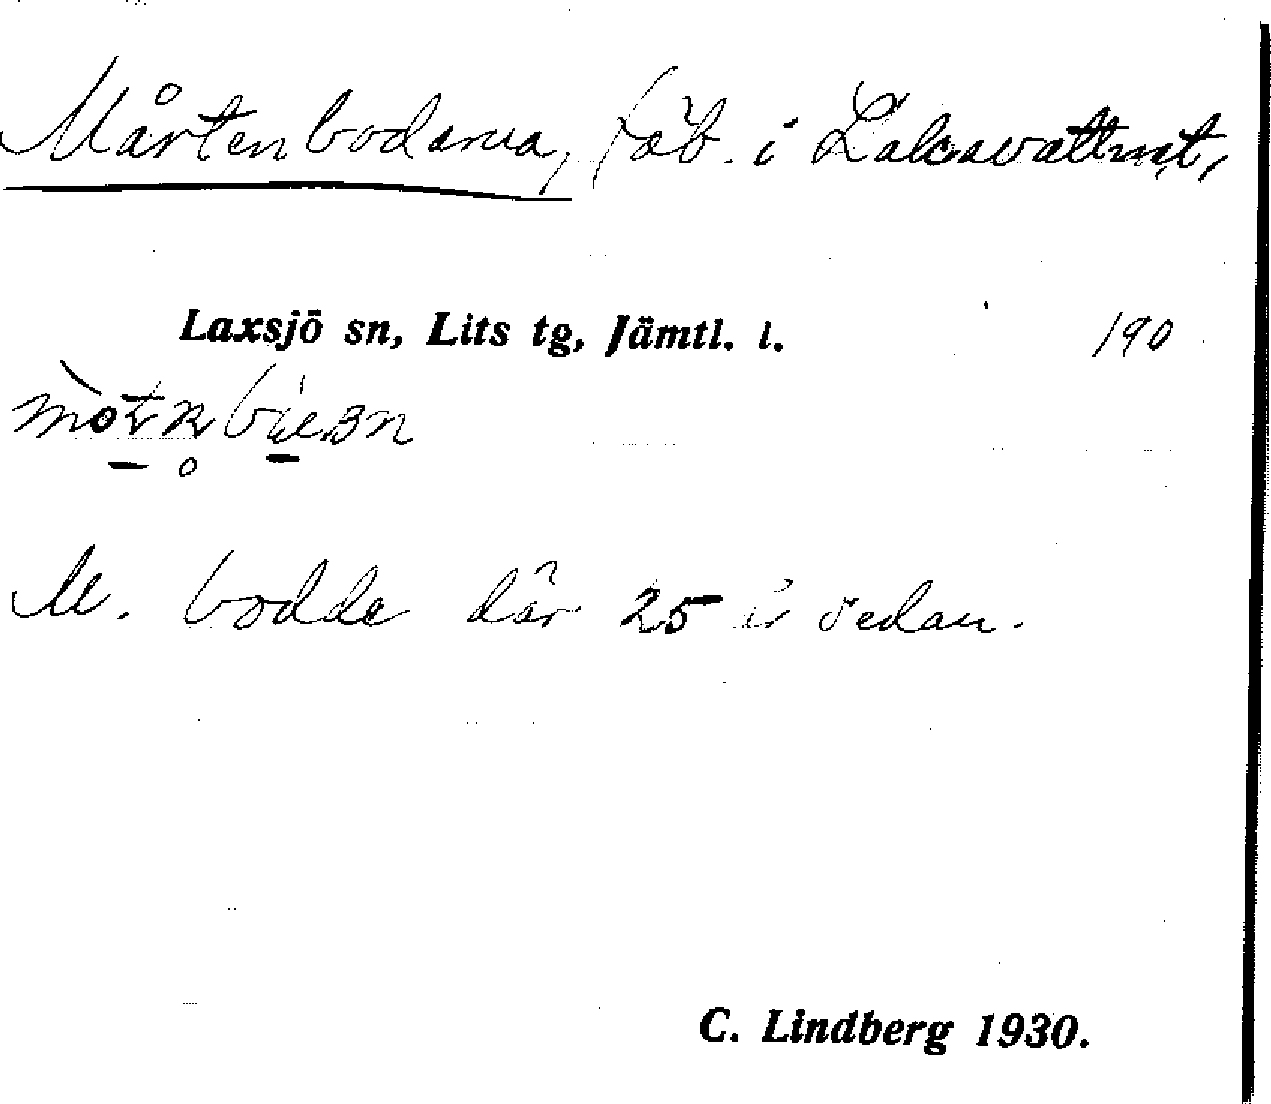 Mårtenbodarna, fäb. i Laksavattnet,
Laxsjö sn, Lits tg, Jämtl. l. 190
M. bodde där 25 år sedan.
C. Lindberg 1930.